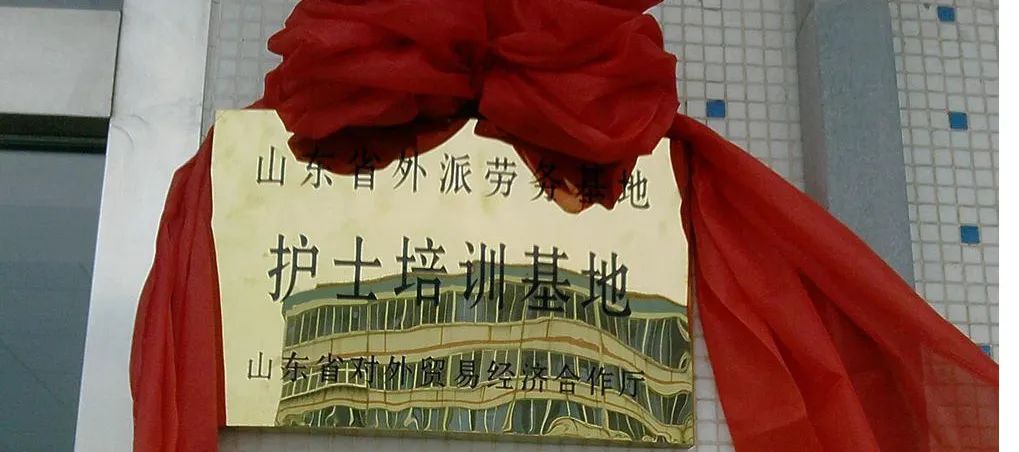 山东省外派劳务基地
护士培训基地
山东省对外贸易经济合作厅